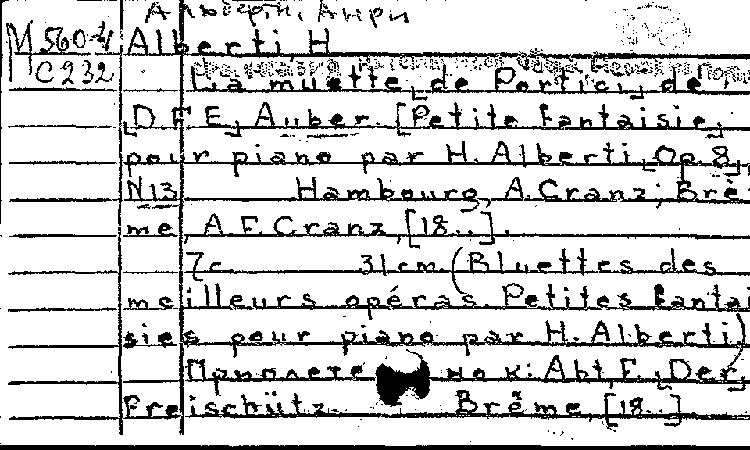 Альберти, Анри
М 560-4 Alberti H
C 232
La muette de Portici de
D F E Auber. [Petite fantaisie
pour piano par H. Alberti, Op 8,
N13 Hambourg, A. Cranz; Brê
me, A.F. Cranz, [18..].
7c. 31cm. (Bluettes des
meilleurs opéras. Petites fantai
sies pour piano par H. Alberti)
Приплете но к: Abt, F. Der
Freischütz. Brême, [18..]